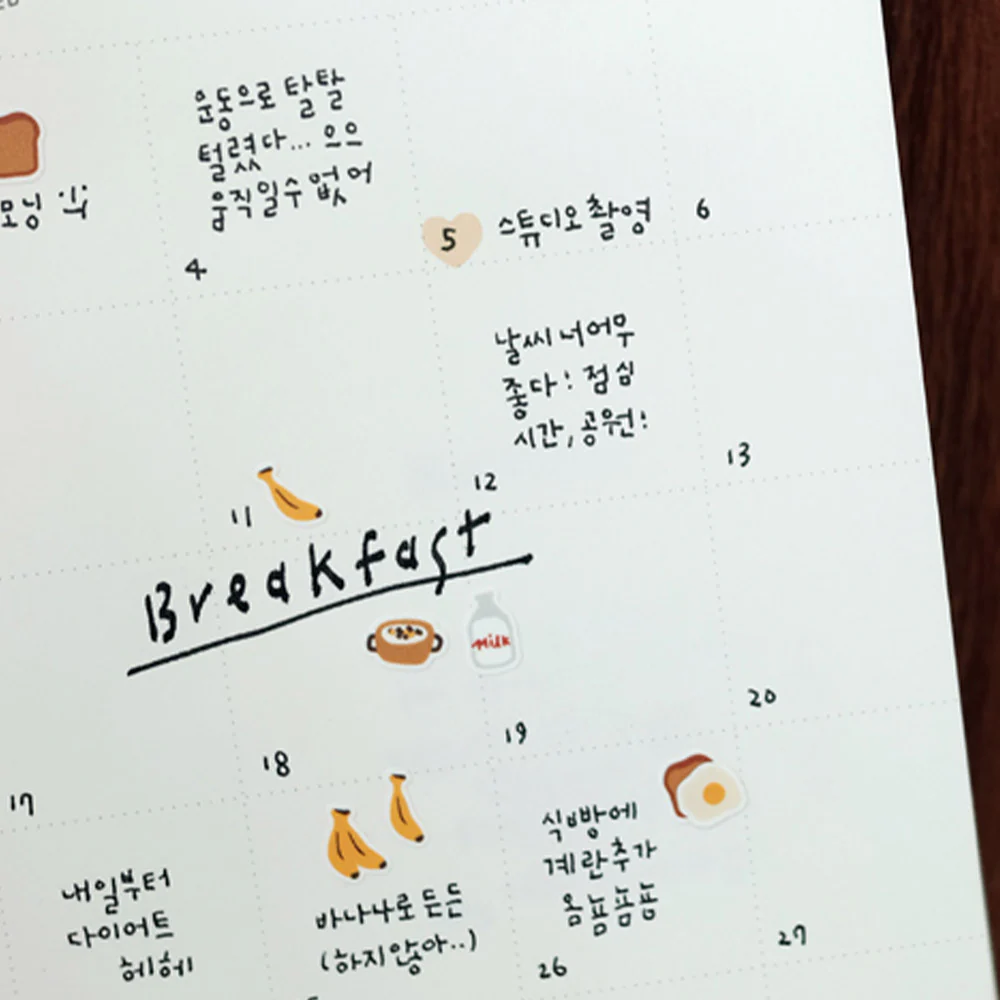 모닝 식
운동으로 탈탈
털렸다... 으으
움직일수 없어
4
5
스튜디오 촬영
6
날씨 너어무
좋다! 점심
시간, 공원!
11
12
13
Breakfast
Milk
17
18
19
20
내일부터
다이어트
헤헤
바나나로 든든
(하지않아..)
식빵에
계란추가
욤뇸뇸뇸
26
27